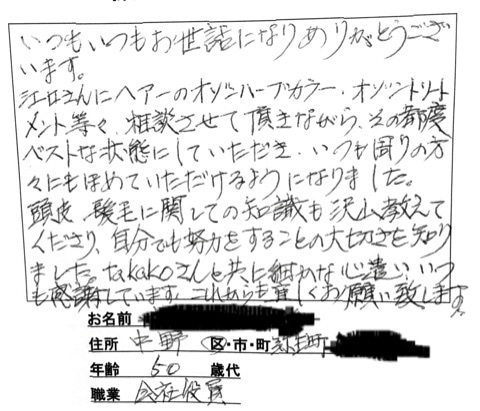 いつもいつもお世話になりありがとうござ
います。
江口さんにヘアーのオゾンハーブカラー・オゾントリート
メント等々、相談させて頂きながら、その都度
ベストな状態にしていただき、いつも周りの方
々にもほめていただけるようになりました。
頭皮、髪毛に関しての知識も沢山教えて
くださり、自分でも努力をすることの大切さを知り
ました。takakoさんと共に細かな心遣い、いつ
も感謝しています。これからも宜しくお願い致します。
お名前
住所 中野 区・市・町 弥生町
年齢 50 歳代
職業 会社役員